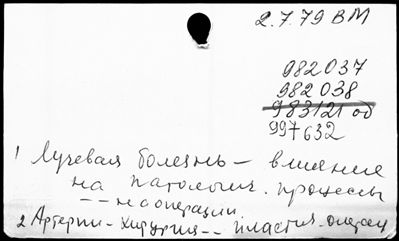 2.7.79 ВМ
982037
982038
983121 об
997632
1 Лучевая болезнь - влияние
на патологич. процессы
-- на операции.
2 Артерии - хирургия -- пластич. операц